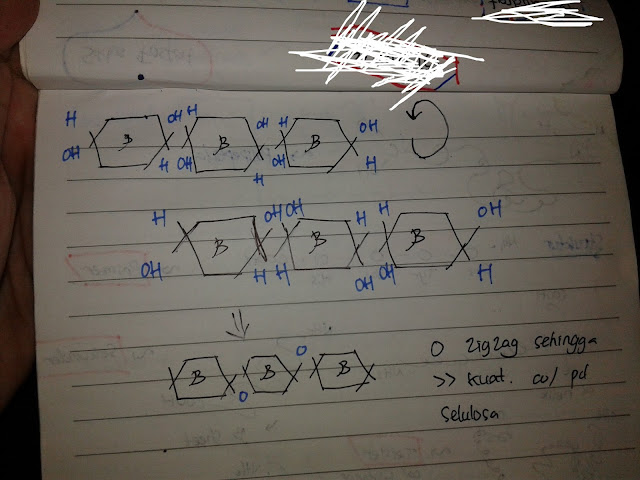 H OH H OH H OH
B B B
OH H OH H OH H
H OH OH H H OH
B B B
OH H H OH OH H
O
B B B
O
O zigzag sehingga
>> kuat. co/ pd
selulosa